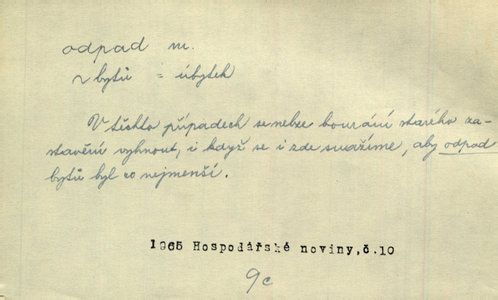 odpad m.
~ bytů = úbytek
V těchto případech se nelze bourání starého za-
stavění vyhnout, i když se i zde snažíme, aby odpad
bytů byl co nejmenší.
1965 Hospodářské noviny,č.10
9c